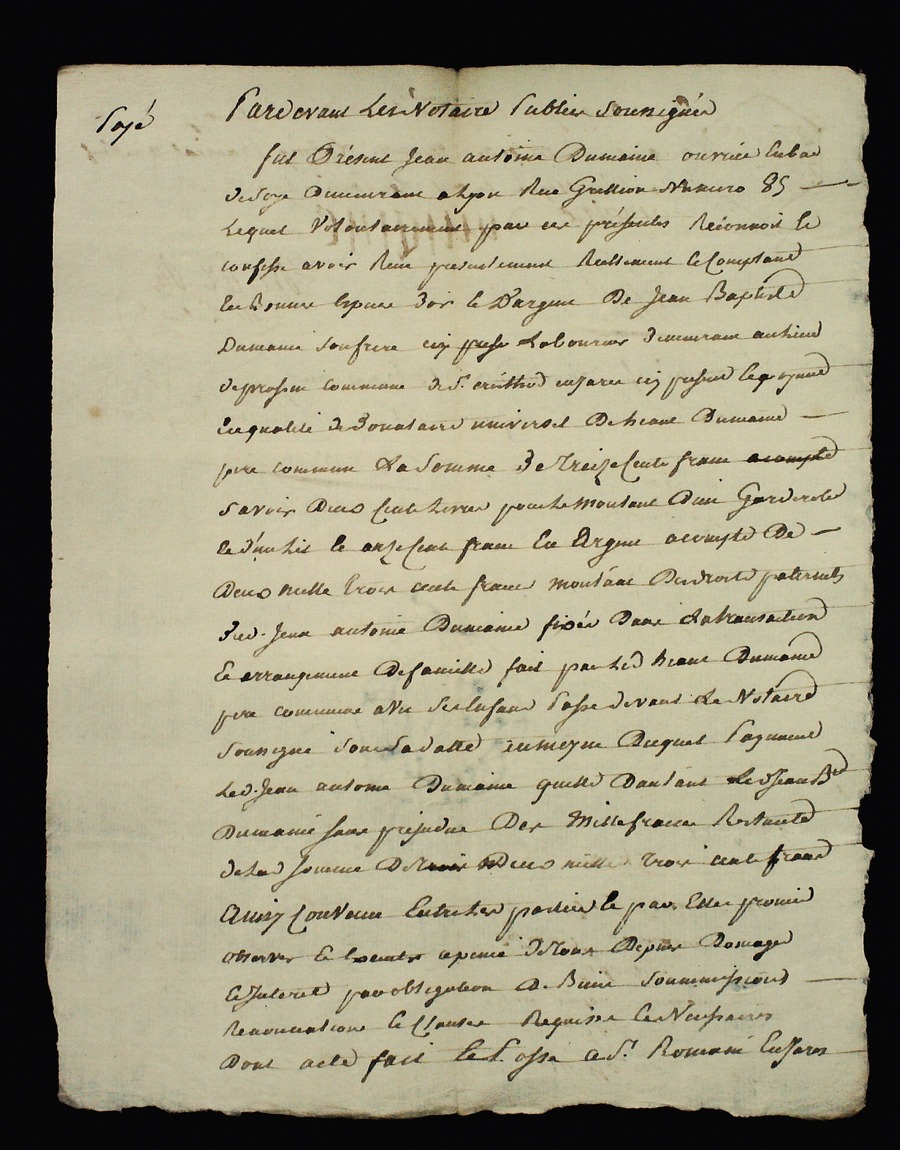 Payé
Pardevant Les Notaire Publics soussignés
fut Présent Jean antoine Dumaine ouvrier en bas
de soye Demeurant a Lyon Rue Grollion Numero 85
Lequel Volontairement par ces présentes Réconnoit et
confesse avoir Reçu présentement Réellement et Comptant
En Bonne Espece d'or et D'argent De Jean Baptiste
Dumaine son frere Laboureur demeurant au lieu
de commune de St. en Jarez cy présent
En qualité de Donataire universel De Dumaine
pere commun La somme de Treize Cents francs acompte
savoir Deux Cents Livres pour Le montant D'un Garderobe
et D'un Lit et onze Cent francs En Argent acompte De
Deux mille trois cents francs montant Des droits paternels
dud. Jean antoine Dumaine fixés Dans La transaction
Et arrangement De famille fait par Led Dumaine
pere commun avec ses Enfants Passé devant Le Notaire
soussigné sous sa datte Duquel Payment
Led. Jean antoine Dumaine quitte D'autant Led Jean Bte
Dumaine sans préjudice Des Mille francs Restants
de Lad somme De Deux mille trois cents francs
Ainsy Convenu Entre Les parties et par Elles promis
observer Et a peine de Tous Depens Domage
Et Interet par obligation De Biens soummissions
Renonciations et Clauses Requises et Necessaires
Dont acte fait et Passé a St Romain En Jarez